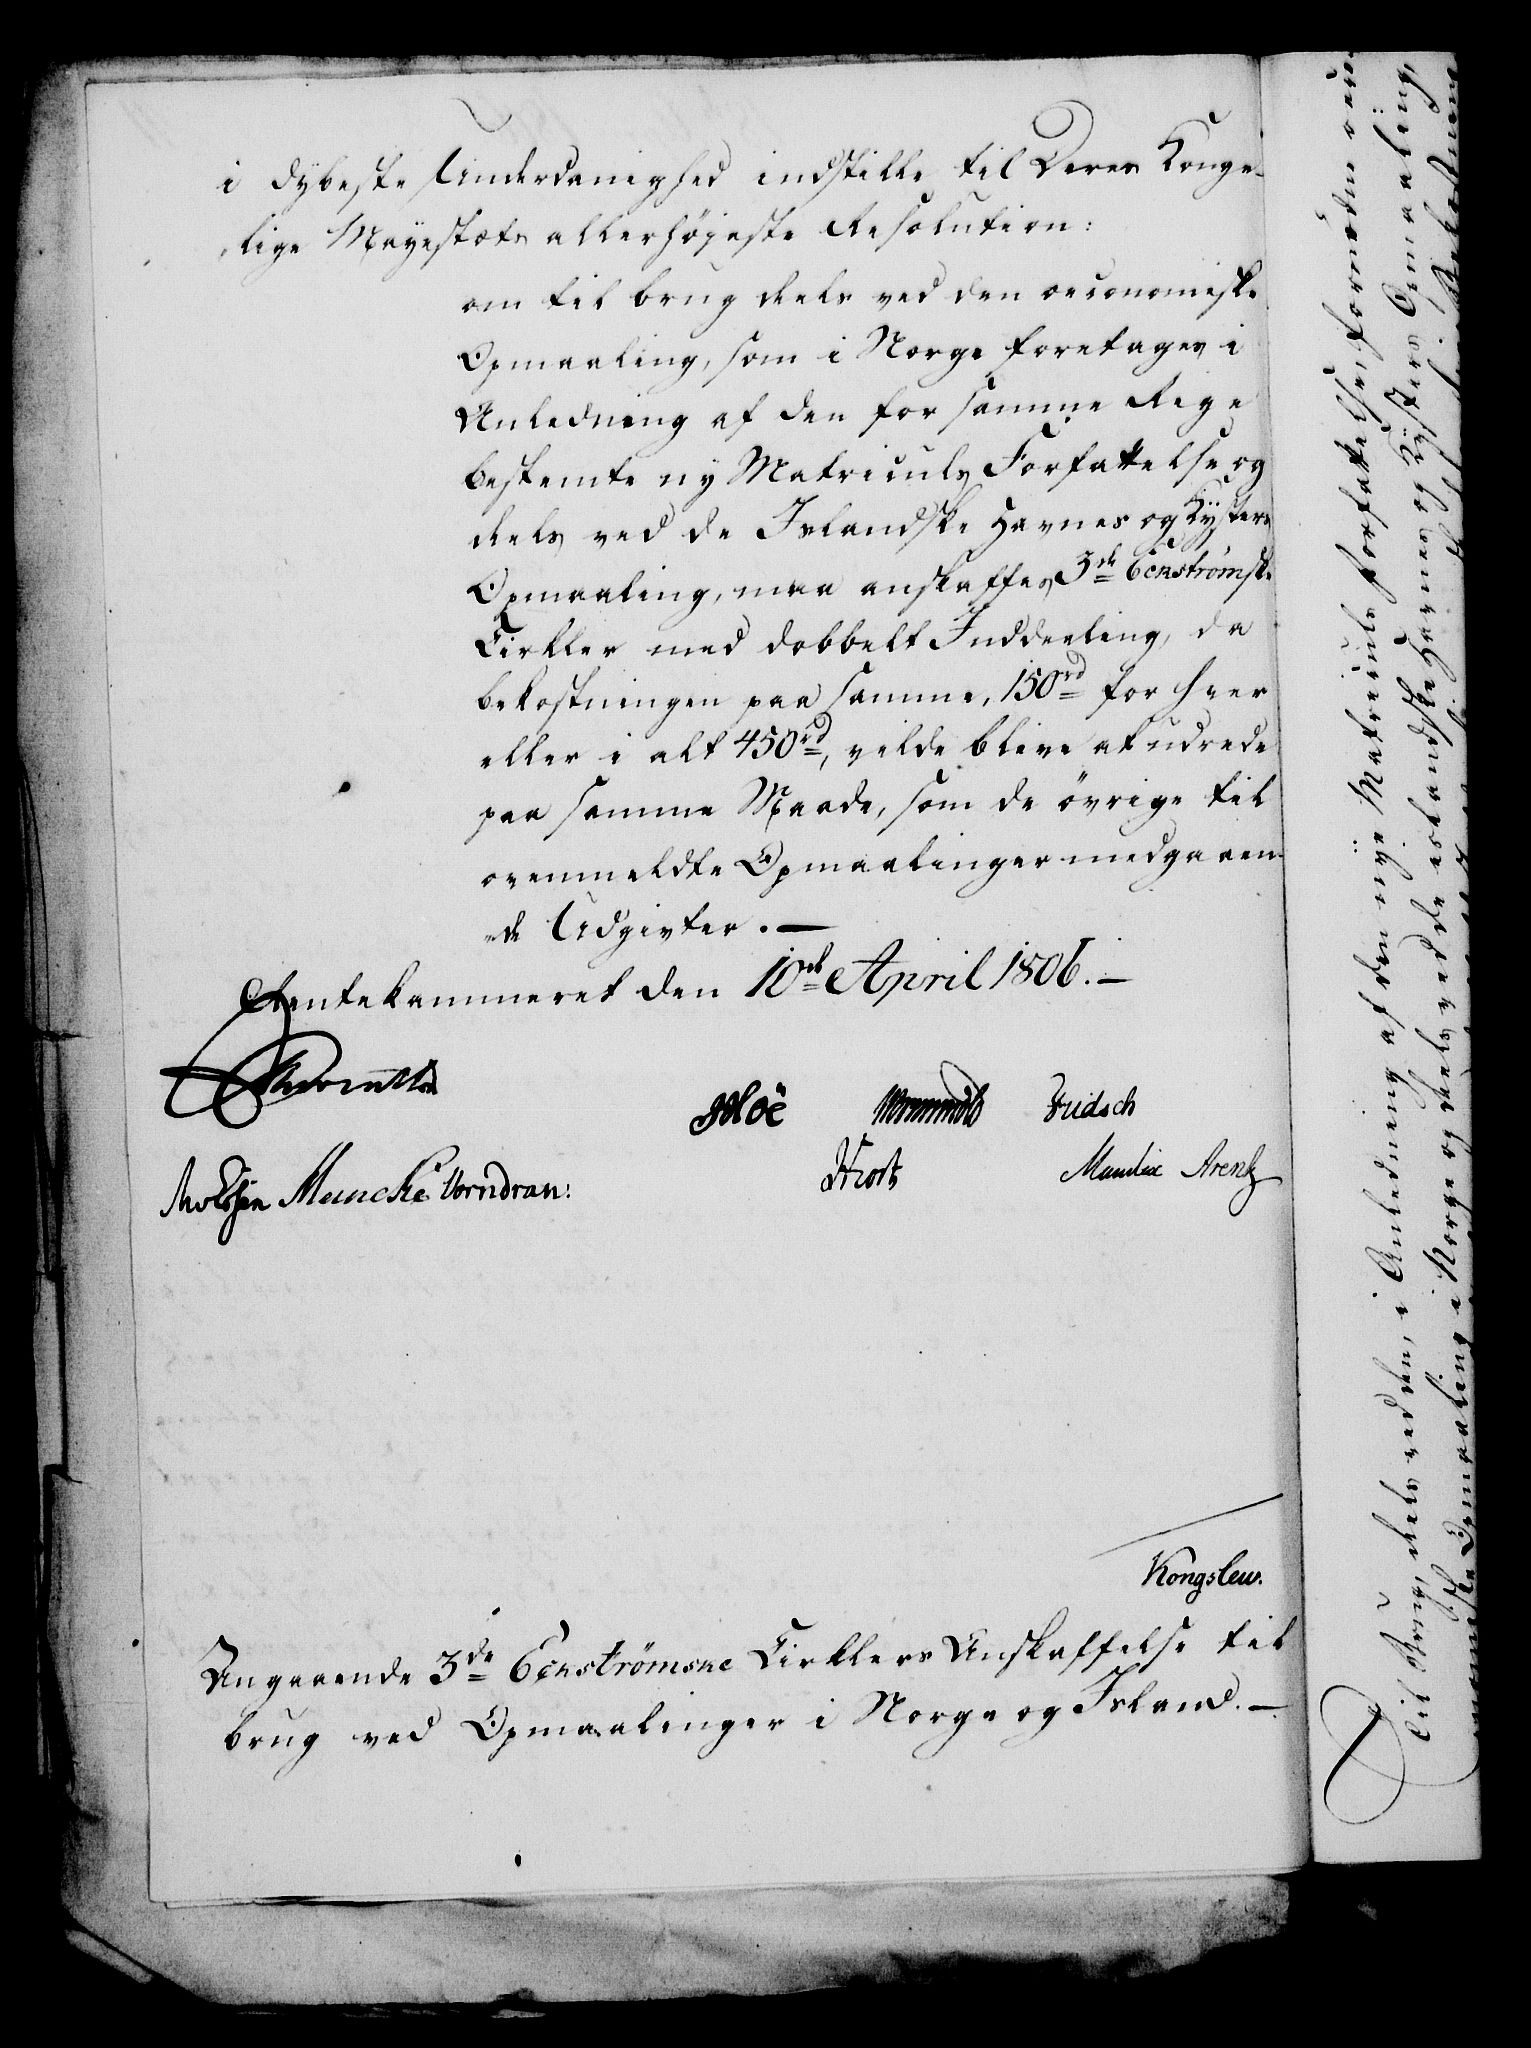 i dybeste Underdanighed indstille til Deres Konge-
lige Mayestæts allerhöjeste Resolution:
om til brug deels ved den oeconomiske
Opmaaling, som i Norge foretages i
Anledning af den for samme Rige
bestemte ny Matriculs Forfattelse og
deels ved de Islandske Havnes og Kysters
Opmaaling, maa anskaffes 3de Eckströmske
Cirkler med dobbelt Inddeeling, da
bekostningen paa samme, 150rd for hver
eller i alt 450rd, vilde blive at udrede
paa samme Maade, som de övrige til
ovenmeldte Opmaalinger medgaaen-
de Udgivter. —
Rentekammeret den 10de April 1806. —
Hoë Wormskiold Fridsch
Muncke Vorndran:
Arentz
Kongslew.
Angaaende 3de Eckströmske Cirklers Anskaffelse til
brug ved Opmaalinger i Norge og Island. —
Til Brug, deels ved den, i Anledning af den nye Matriculs Forfattelse, forevædne oeco-
nomiske Opmaaling i Norge og deels ved de islandske Havnes og Kysters Opmaaling,